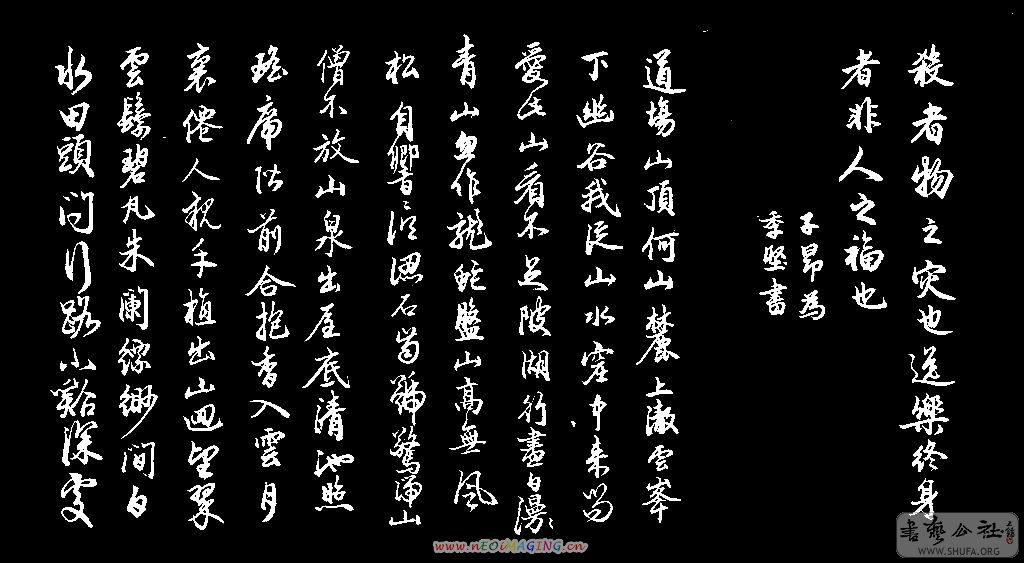 殺者物之灾也逸樂終身
者非人之福也
子昂為
季堅書
道場山頂何山麓上澈雲峯
下幽谷我従山水窟中来尚
愛此山看不足陂湖行盡白漫〻
青山忽作龍蛇盤山高無風
松自響〻誤認石齒號驚湍山
僧不放山泉出屋底清池照
瑤席階前合抱香入雲月
裏僊人親手植出山迴望翠
雲鬟碧瓦朱闌縹緲間白
水田頭問行路小谿深處
www.nEOiMAGING.cn
書藝公社
WWW.SHUFA.ORG